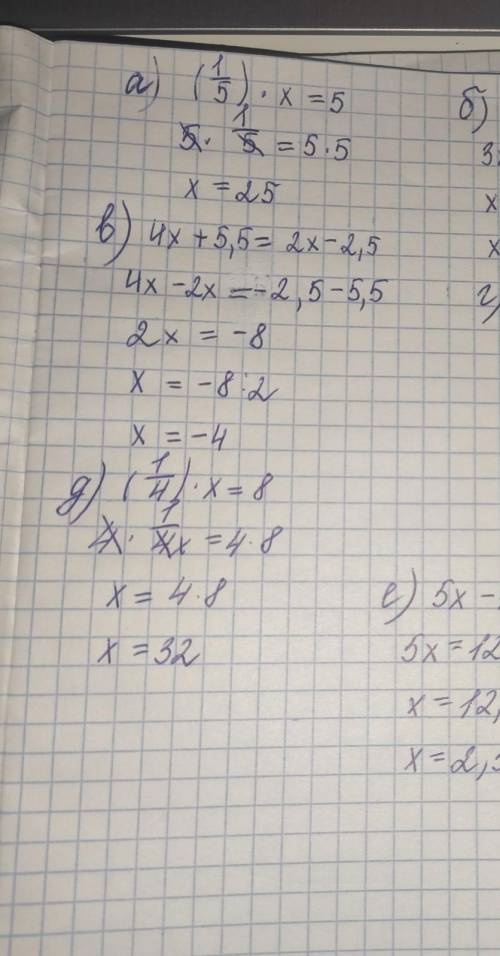 а) (1/5) · x = 5
5 · 1/5 = 5 · 5
x = 25
в) 4x + 5,5 = 2x - 2,5
4x - 2x = -2,5 - 5,5
2x = -8
x = -8 : 2
x = -4
д) (1/4) · x = 8
4 · 1/4x = 4 · 8
x = 4 · 8
x = 32
б)
x
x
г)
е) 5x -
5x = 12
x = 12,
x = 2,